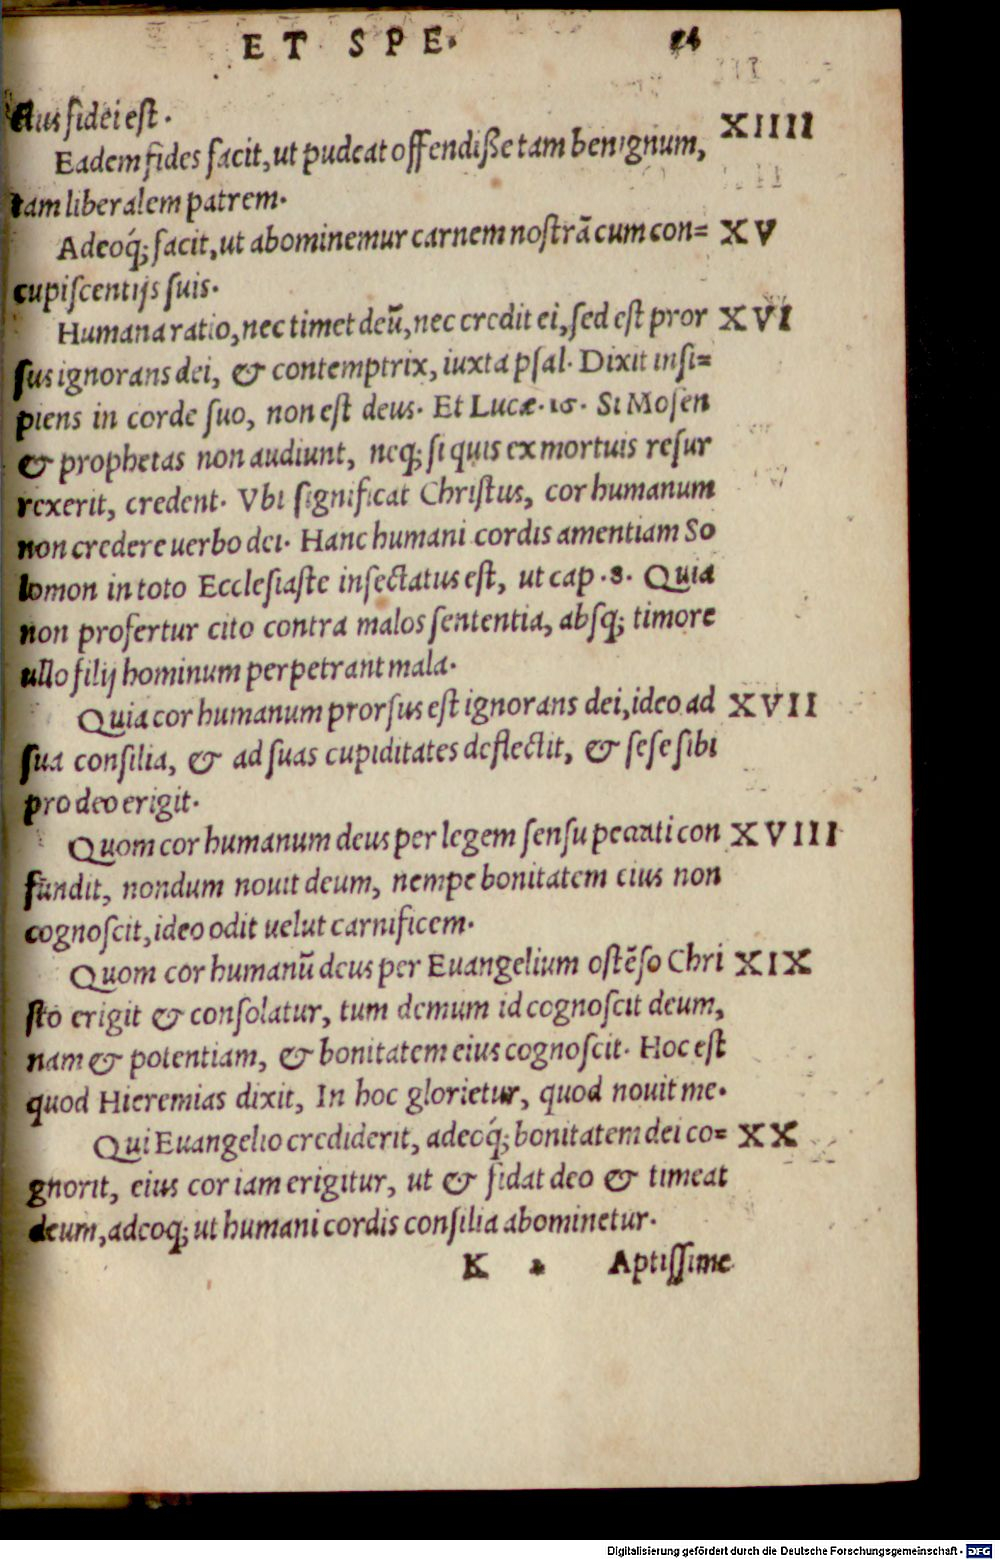 ET SPE.
ctus fidei est.
Eadem fides facit, ut pudeat offendiße tam benignum, XIIII
tam liberalem patrem.
Adeoq́; facit, ut abominemur carnem nostrã cum con= XV
cupiscentijs suis.
Humana ratio, nec timet deũ, nec credit ei, sed est pror XVI
sus ignorans dei, & contemptrix, iuxta psal. Dixit insi=
piens in corde suo, non est deus. Et Lucæ. 16. Si Mosen
& prophetas non audiunt, neq; si quis ex mortuis resur
rexerit, credent. Vbi significat Christus, cor humanum
non credere uerbo dei. Hanc humani cordis amentiam So
lomon in toto Ecclesiaste insectatus est, ut cap .8. Quia
non profertur cito contra malos sententia, absq; timore
ullo filij hominum perpetrant mala.
Quia cor humanum prorsus est ignorans dei, ideo ad XVII
sua consilia, & ad suas cupiditates deflectit, & sese sibi
pro deo erigit.
Quom cor humanum deus per legem sensu peccati con XVIII
fundit, nondum nouit deum, nempe bonitatem eius non
cognoscit, ideo odit uelut carnificem.
Quom cor humanũ deus per Euangelium ostẽso Chri XIX
sto erigit & consolatur, tum demum id cognoscit deum,
nam & potentiam, & bonitatem eius cognoscit. Hoc est
quod Hieremias dixit, In hoc glorietur, quod nouit me.
Qui Euangelio crediderit, adeoq́; bonitatem dei co= XX
gnorit, eius cor iam erigitur, ut & fidat deo & timeat
deum, adeoq; ut humani cordis consilia abominetur.
K 2 Aptissime
Digitalisierung gefördert durch die Deutsche Forschungsgemeinschaft - DFG